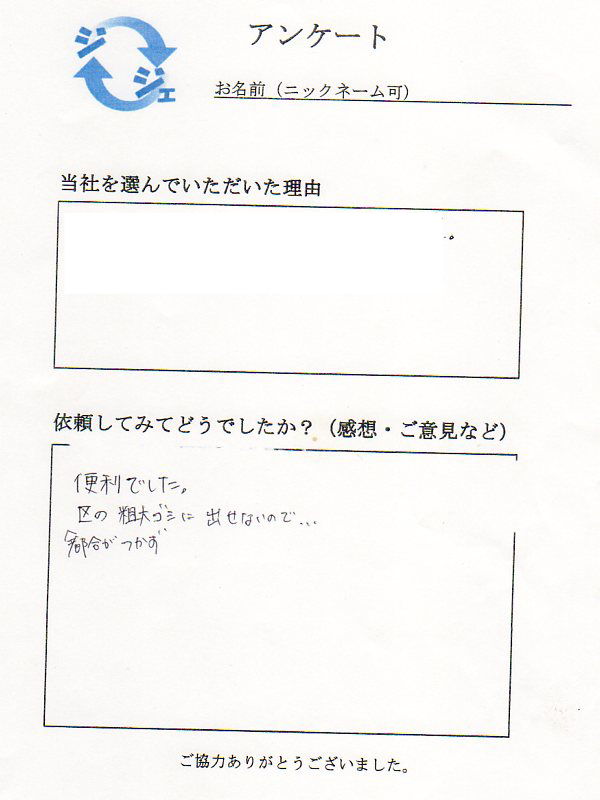 ジジェ
アンケート
お名前（ニックネーム可）
当社を選んでいただいた理由
。
依頼してみてどうでしたか？（感想・ご意見など）
便利でした。
区の粗大ゴミに出せないので...
都合がつかず
ご協力ありがとうございました。